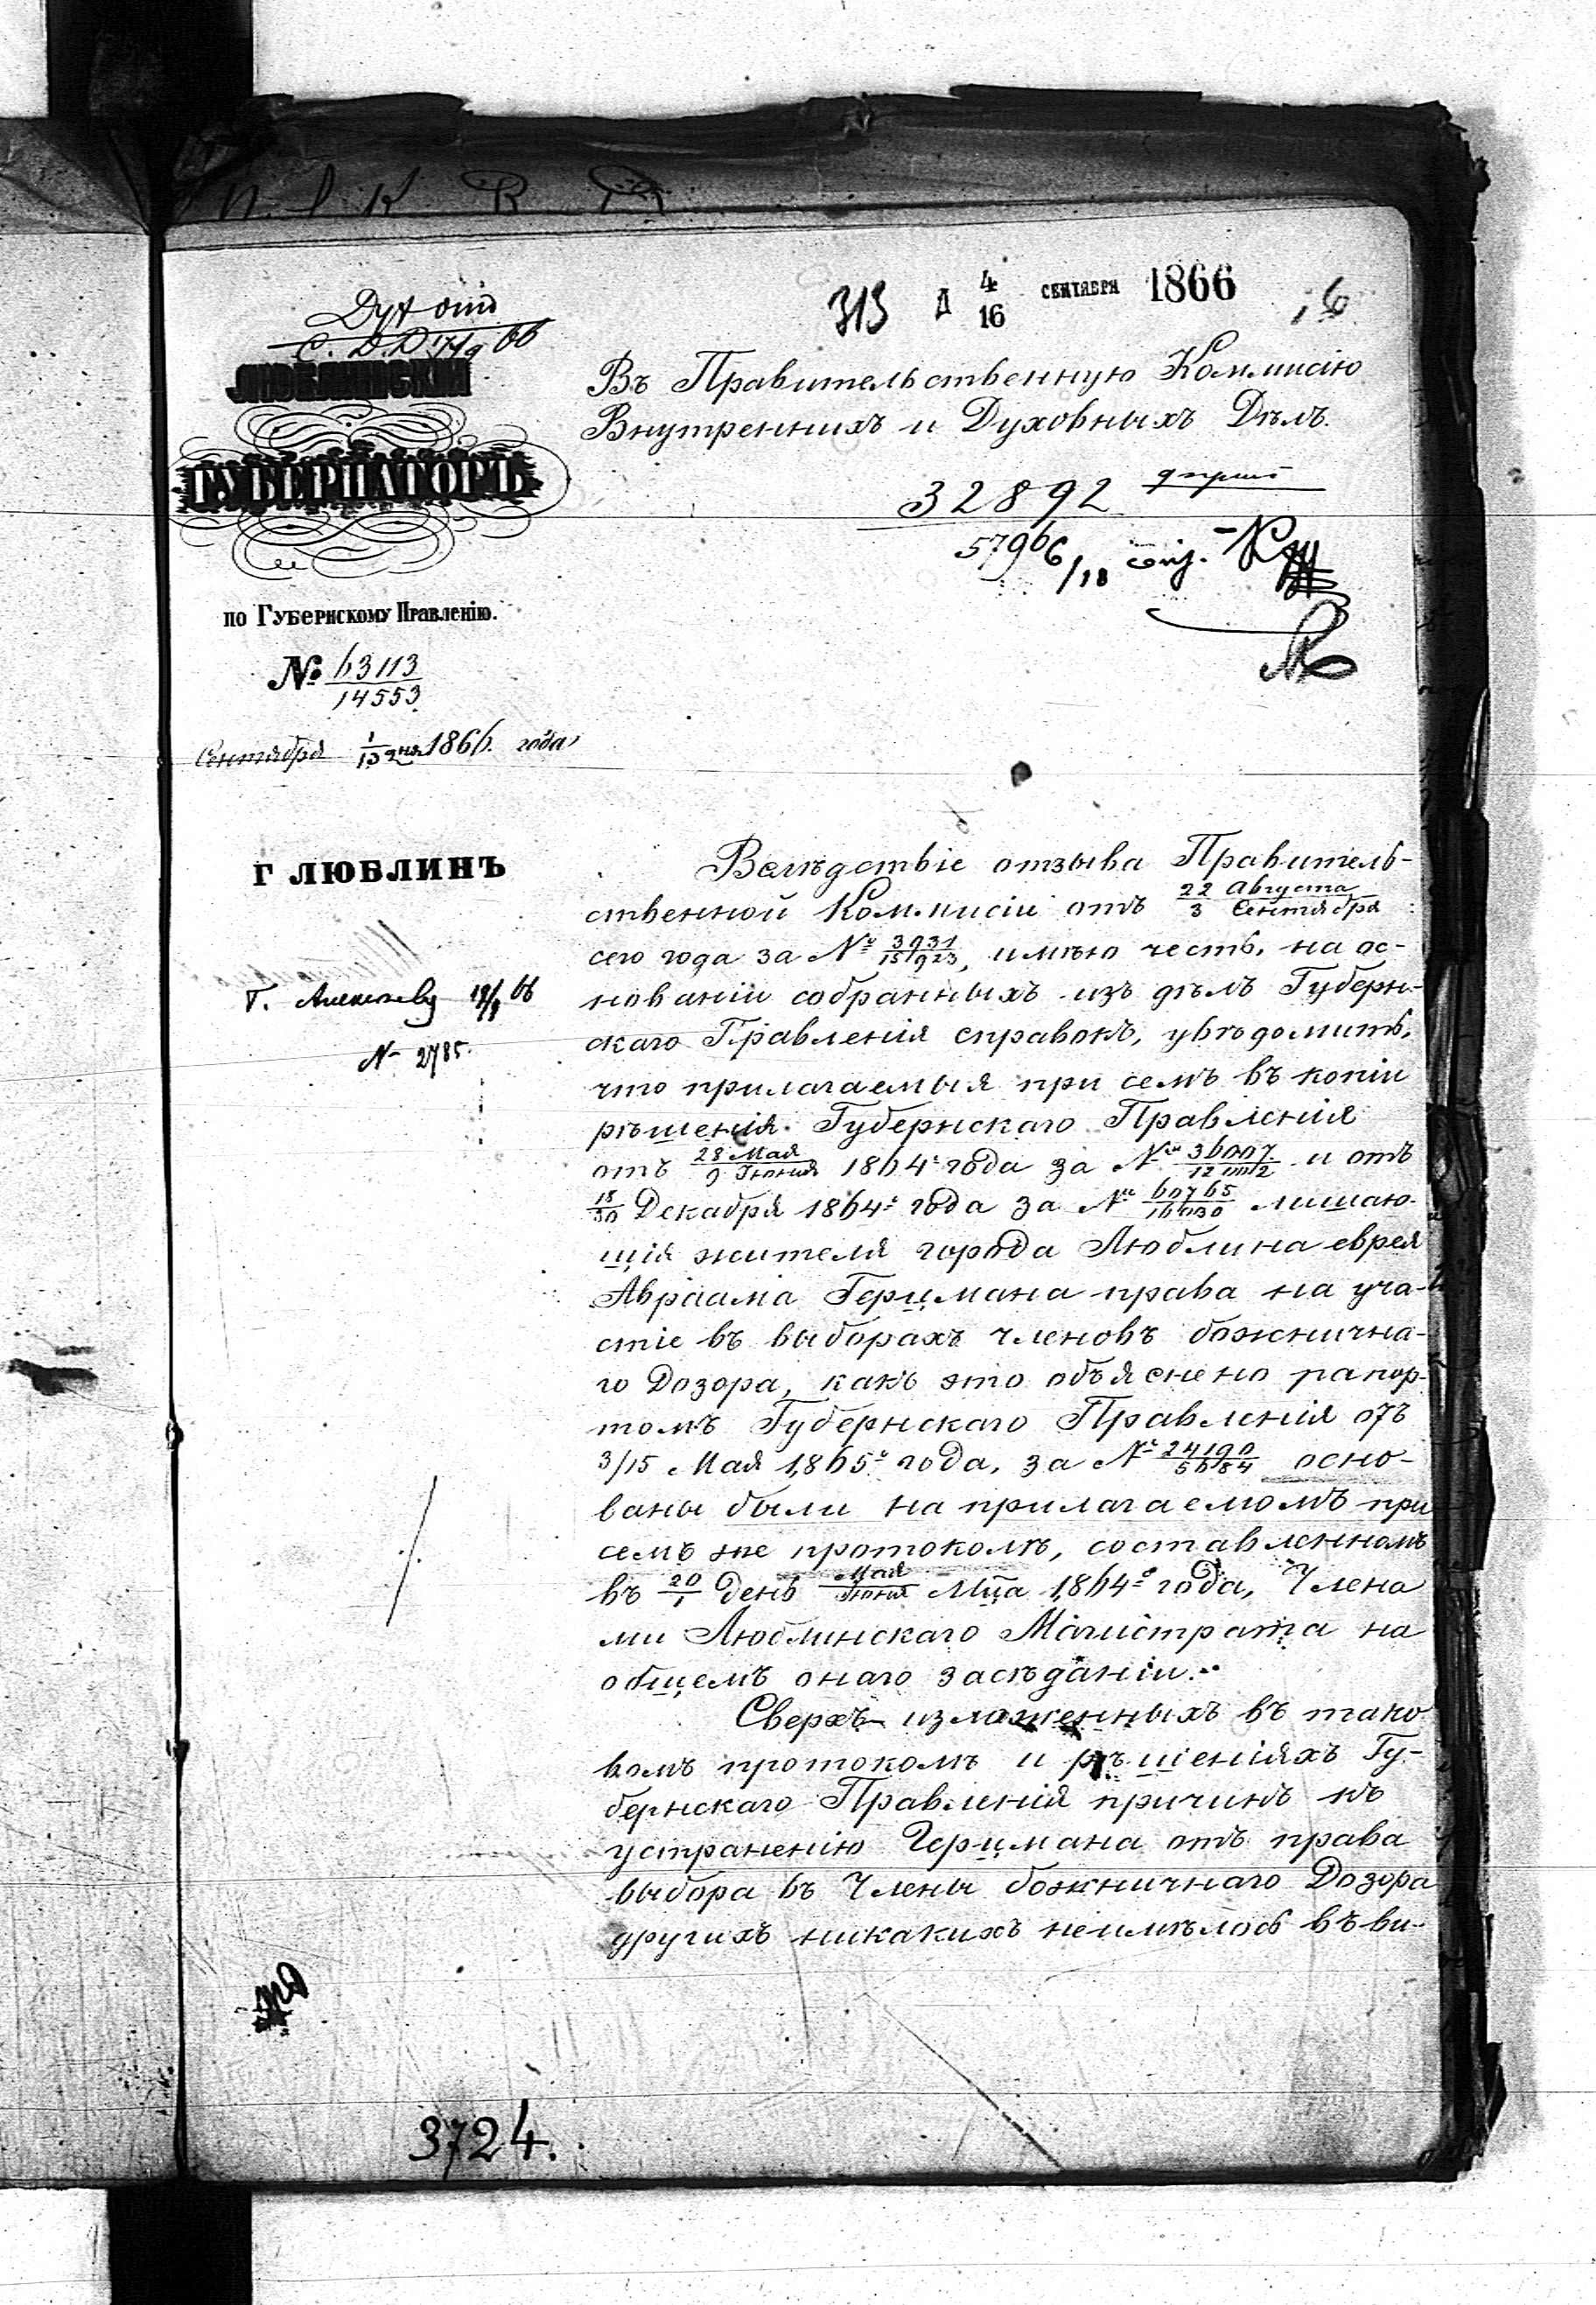 Дух отд
С. Д. Д. 7/9 66
ЛЮБЛИНСКІЙ
ГУБЕРНАТОРЪ
по Губернскому Правленію.
№ 63113/14553
Сентября 1/13 дня 1866. года
Г ЛЮБЛИНЪ
Г. Алексѣеву
№ 2785.
313 Д 4/16 СЕНТЯБРЯ 1866
Въ Правительственную Коммисію
Внутреннихъ и Духовныхъ Дѣлъ.
32892
Вслѣдствіе отзыва Правитель-
ственной Коммисіи отъ 22 Августа/3 Сентября
сего года за № 3931/15923, имѣю честь, на ос-
нованіи собранныхъ изъ дѣлъ Губерн-
скаго Правленія справокъ, увѣдомить,
что прилагаемыя при семъ въ копіи
рѣшенія Губернскаго Правленія
отъ 28 Мая/9 Іюня 1864г года за № 36007 и отъ
18/30 Декабря 1864г года за № 60765 лишаю-
щія жителя города Люблина еврея
Авраама Герцмана права на уча-
стіе въ выборахъ членовъ божнична-
го Дозора, какъ это объяснено рапор-
томъ Губернскаго Правленія отъ
3/15 Мая 1865г года, за № 24190/5684 осно-
ваны были на прилагаемомъ при
семъ же протоколѣ, составленномъ
въ 20/1 день Мая/Іюня Мца 1864го года, Члена
ми Люблинскаго Магистрата на
общемъ онаго засѣданіи.
Сверхъ изложенныхъ въ тако
вомъ протоколѣ и рѣшеніяхъ Гу-
бернскаго Правленія причинъ къ
устраненію Герцмана отъ права
выбора въ Члены божничнаго Дозора
другихъ никакихъ неимѣлось въ ви-
3724.